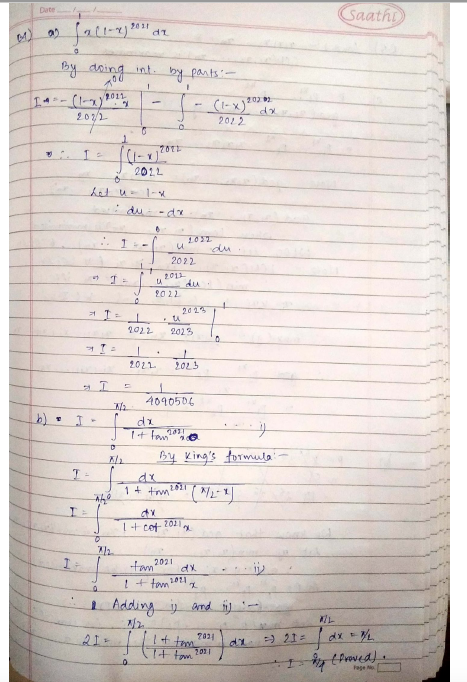 Date
Saathi
Q1) a) ∫₀¹ x(1-x)^2021 dx
By doing int. by parts:-
I = -(1-x)^2022/2022 · x |₀¹ - ∫₀¹ -(1-x)^2022/2022 dx
∴ I = ∫₀¹ (1-x)^2022/2022
Let u = 1-x
∴ du = -dx
∴ I = -∫ u^2022/2022 du
⇒ I = ∫₀¹ u^2022/2022 du
⇒ I = 1/2022 · u^2023/2023 |₀¹
⇒ I = 1/2022 · 1/2023
⇒ I = 1/4090506
b) I = ∫₀^π/2 dx/(1+tan^2021 x) .... i)
By King's formula:-
I = ∫₀^π/2 dx/(1+tan^2021 (π/2-x))
I = ∫₀^π/2 dx/(1+cot^2021 x)
I = ∫₀^π/2 tan^2021 dx/(1+tan^2021 x) .... ii)
Adding i) and ii) :-
2I = ∫₀^π/2 (1+tan^2021/1+tan^2021) dx ⇒ 2I = ∫₀^π/2 dx = π/2
∴ I = π/4 (Proved).
Page No.